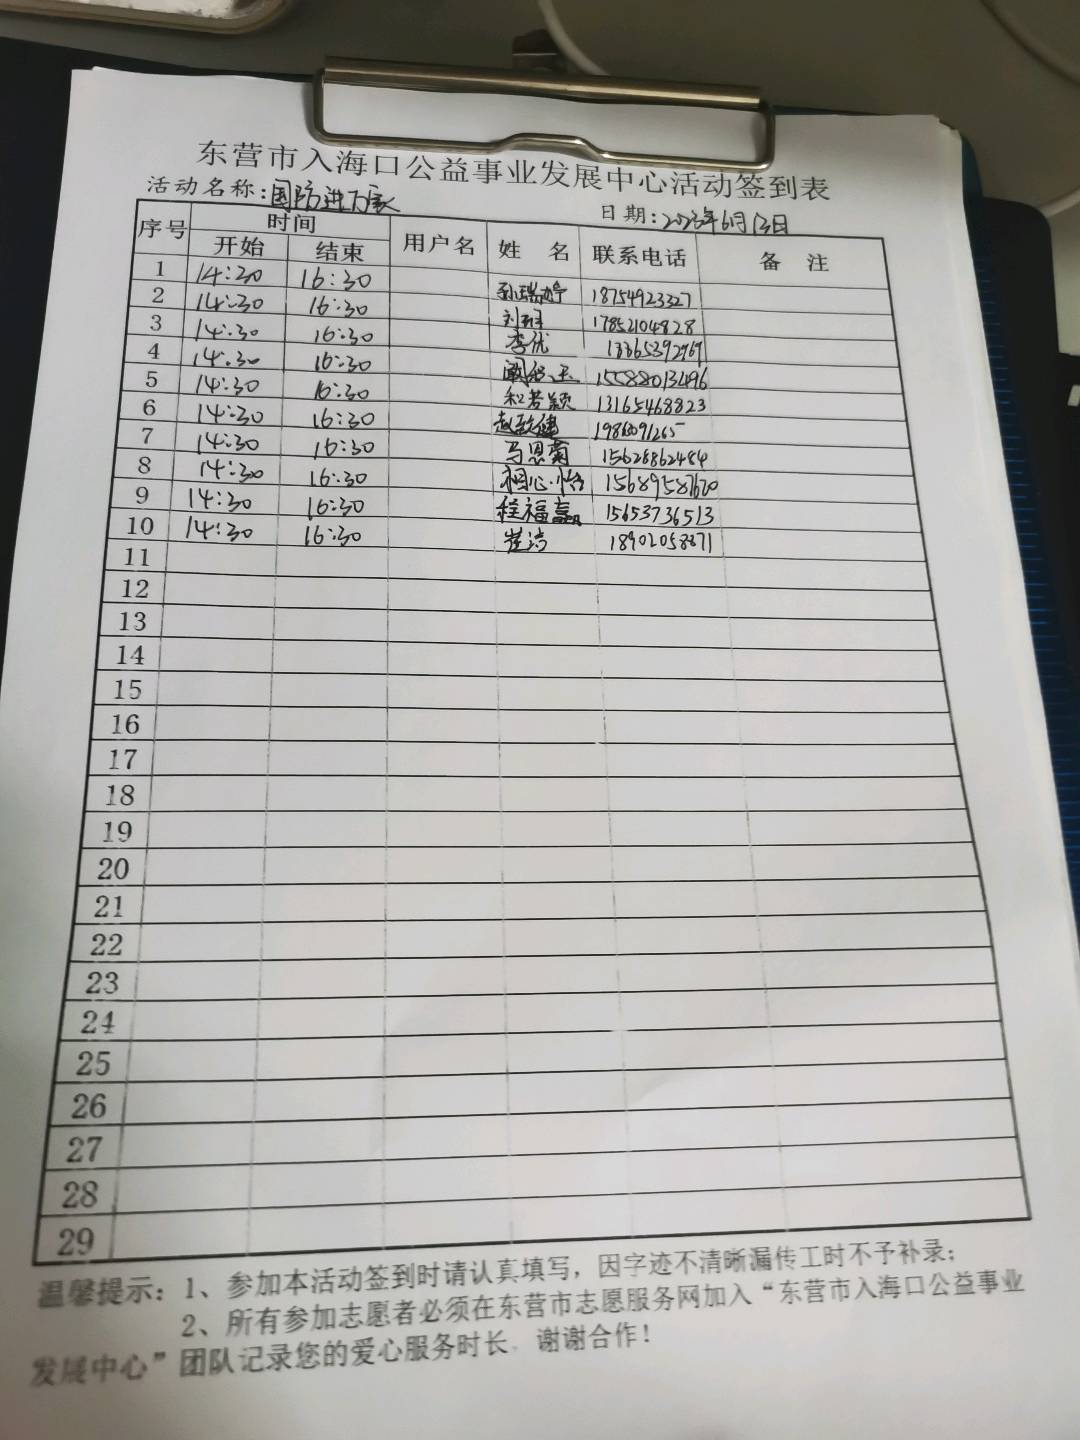 东营市入海口公益事业发展中心活动签到表
活动名称：国防进万家 日期：2023年6月13日
序号 时间 用户名 姓 名 联系电话 备 注
开始 结束
1 14:30 16:30 孙瑞婷 18754923327
2 14:30 16:30 刘珂 17852104828
3 14:30 16:30 李优 13365392769
4 14:30 16:30 15588013496
5 14:30 16:30 和若颖 13165468823
6 14:30 16:30 赵毅健
7 14:30 16:30 马恩菊 15628862484
8 14:30 16:30 相心怡 15689587620
9 14:30 16:30 程福赢 15653736513
10 14:30 16:30 崔洁
11
12
13
14
15
16
17
18
19
20
21
22
23
24
25
26
27
28
29
温馨提示：1、参加本活动签到时请认真填写，因字迹不清晰漏传工时不予补录；
2、所有参加志愿者必须在东营市志愿服务网加入“东营市入海口公益事业
发展中心”团队记录您的爱心服务时长，谢谢合作！